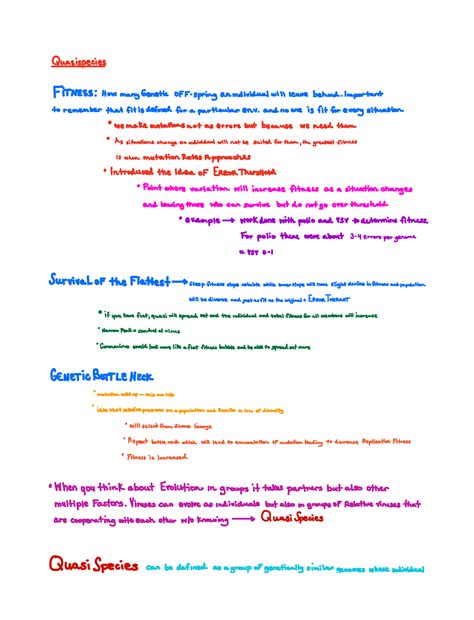 Quasispecies
FITNESS: How many Genetic OFF-spring an individual will leave behind. Important
to remember that fit is defined for a particular env. and no one is fit for every situation
* we make mutations not as errors but because we need them
* As situations change an individual will not be suited for them, the greatest fitness
is when mutation Rates Approaches
* Introduced the idea of ERROR Threshold
* Point where variation will increase fitness as a situation changes
and lowing those who can survive but do not go over threshold
* example → work done with polio and VSV to determine fitness.
For polio there were about 3-4 errors per genome
= VSV 0-1
Survival OF the Flattest → steep fitness slope while lower slope will have slight decline in fitness and population
will be diverse and just as fit as the original =
* if you have flat, quasi will spread out and the individual and total fitness for all members will increase
* Narrow Peak = control of virus
* Coronavirus would look more like a flat fitness bubble and be able to spread out more
GENETIC BOTTLE NECK
* mutation build up
* idea that pressure on a population and Results in loss of diversity
* will select from diverse
* Repeat bottle neck which will lead to accumulation of mutation leading to decrease Replicative Fitness
* Fitness is increased
* When you think about Evolution in groups it takes partners but also other
multiple Factors. Viruses can evolve as individuals but also in groups of Relative viruses that
are cooperating with each other w/o knowing → Quasi Species
Quasi Species can be defined as a group of genetically similar genomes whose individual